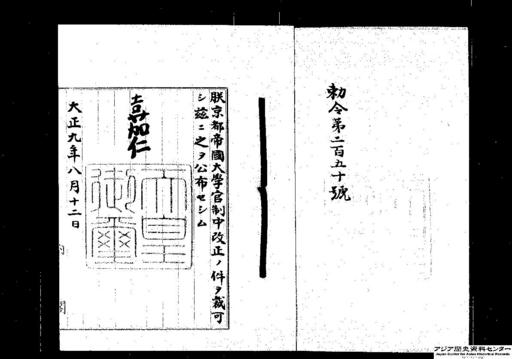 勅令第二百五十號
朕京都帝國大學官制中改正ノ件ヲ裁可
シ茲ニ之ヲ公布セシム
嘉仁
天皇御璽
大正九年八月十二日
内閣
アジア歴史資料センター
Japan Center for Asian Historical Records